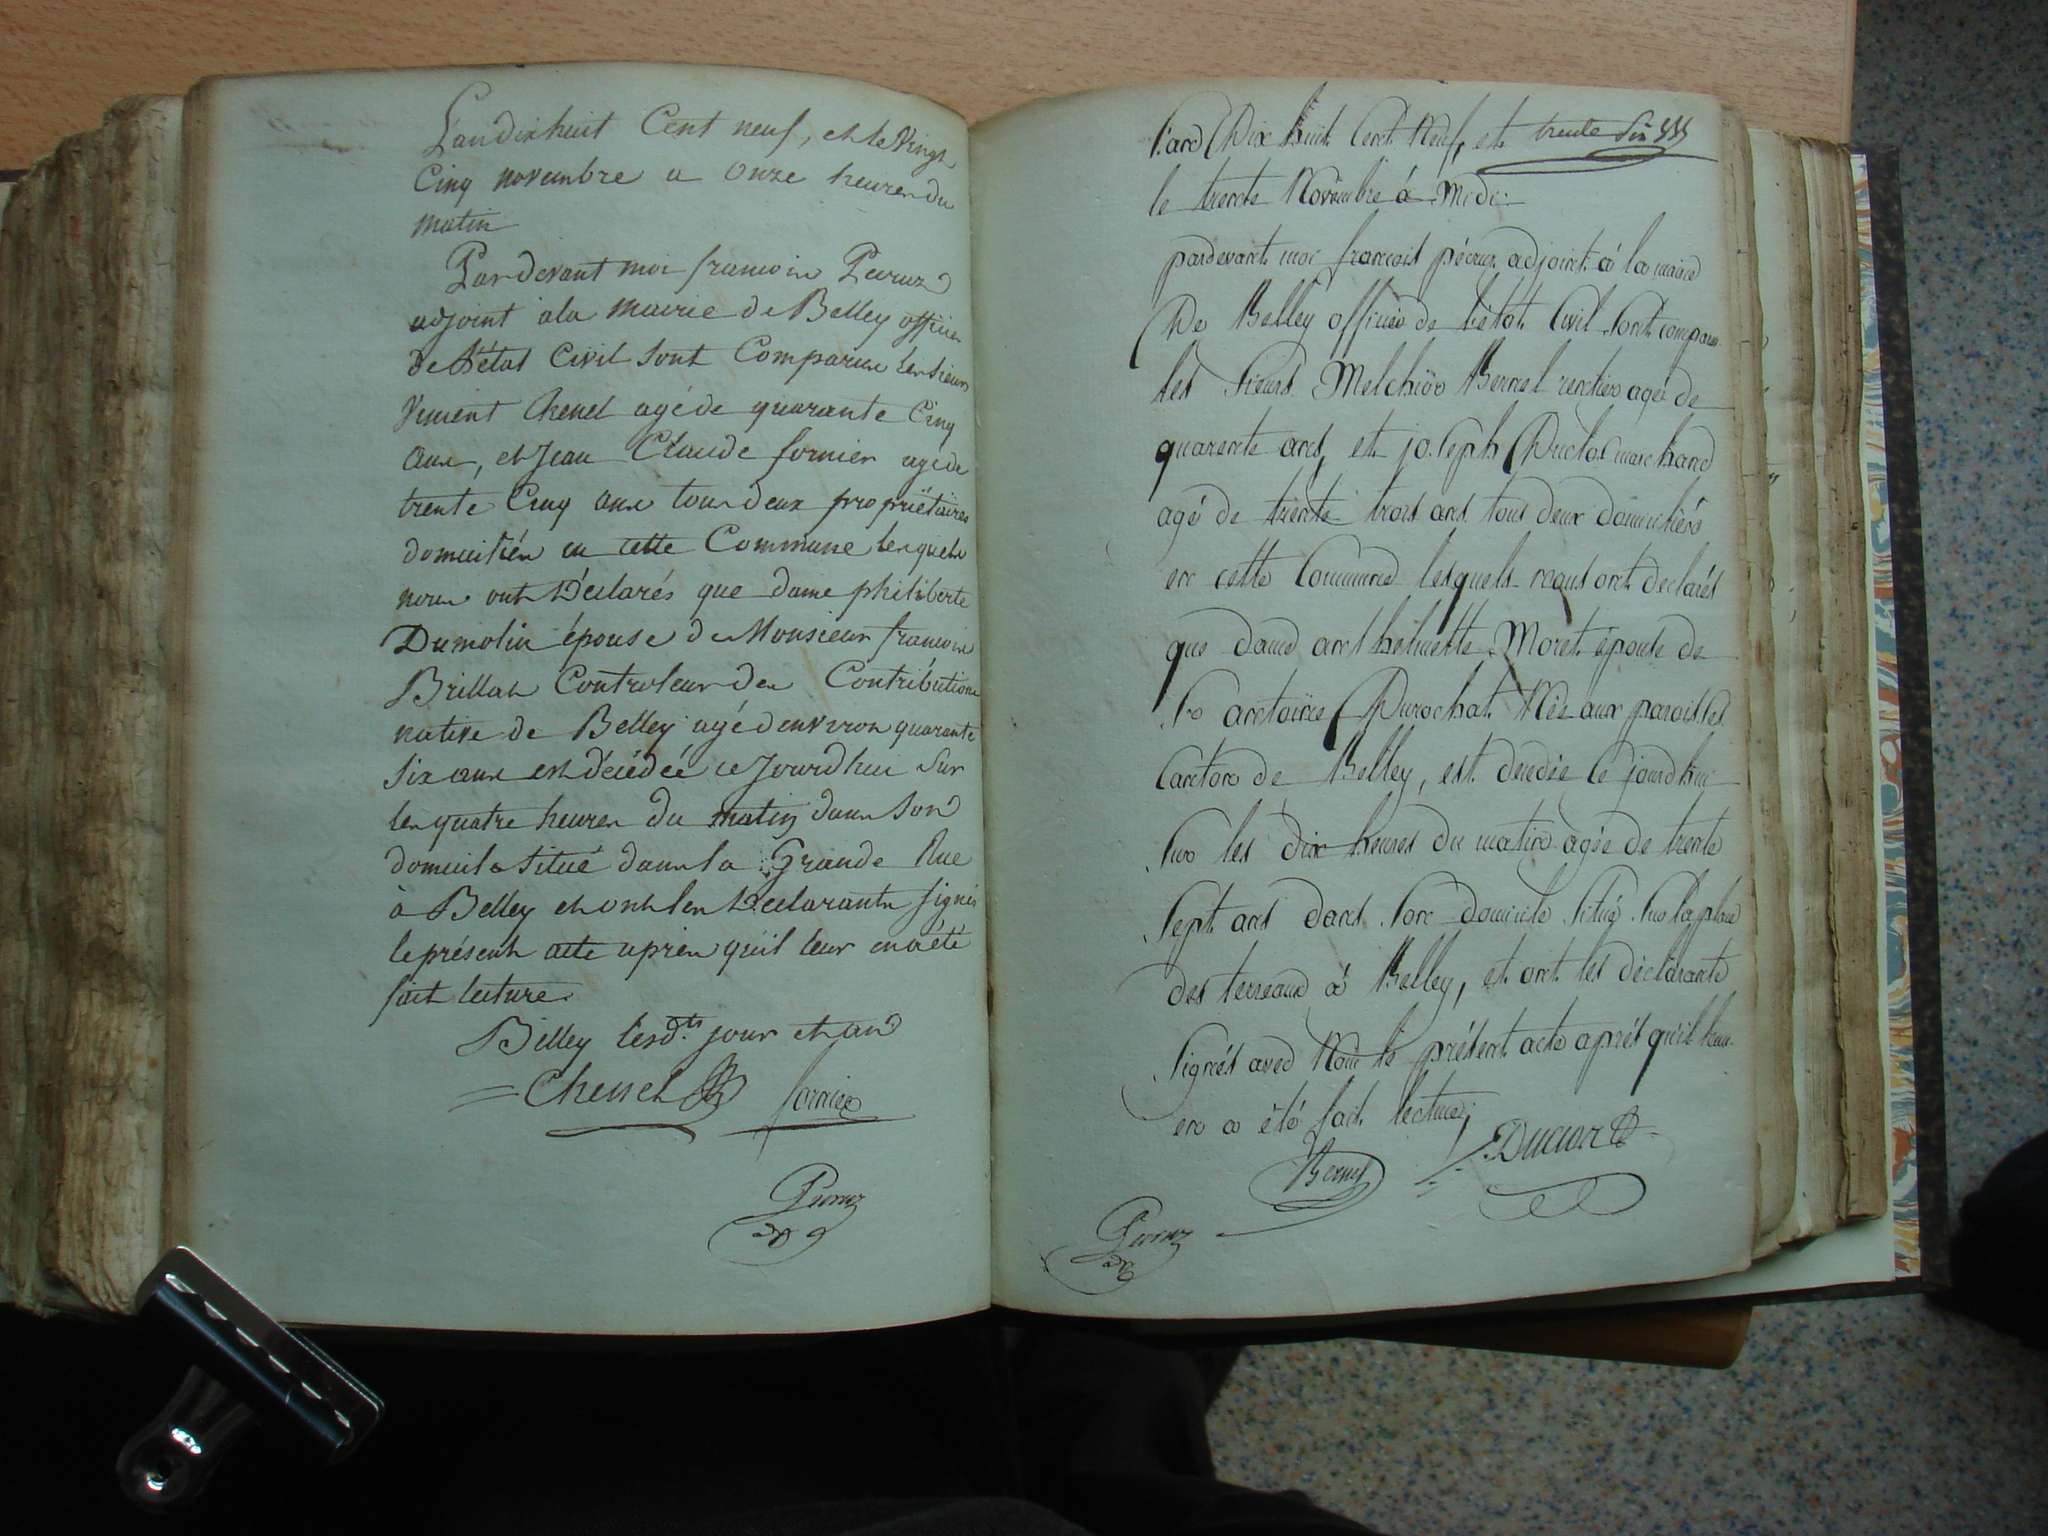 L'an dix huit Cent neuf, et le Vingt
Cinq novembre a Onze heures du
matin
Pardevant moi francois Peeruz
adjoint à la mairie de Belley officier
de L'état Civil sont Comparus les sieurs
Vincent Chenel agé de quarante Cinq
ans, et Jean Claude fornier agé de
trente Cinq ans tous deux propriétaires
domiciliés en cette Commune lesquels
nous ont Déclarés que dame philiberte
Dumolin épouse de Monsieur francois
Brillat Controleur des Contributions
native de Belley agé d'environ quarante
six ans est décédée ce Jourd'hui Sur
les quatre heures du matin dans Son
domicile situé dans la Grande Rue
à Belley et ont les Déclarants signés
le présent acte après qu'il leur en a été
fait lecture.
Belley lesd.ts jour et an
Chenel fornier
Peeruz
L'an Dix huit Cent Neuf, et trente six
le trente Novembre à Midi
pardevant moi francois péeruz adjoint à la mairie
De Belley officier de l'état Civil sont comparus
les Sieurs Melchior Bernel rentier agé de
quarente ans, et joseph Duclos marchand
agé de trente trois ans tous deux domiciliés
en cette Commune lesquels nous ont declarés
que dame anthelmette Moret épouse de
Sr antoine Durochat Née aux paroisses
Canton de Belley, est décédée ce jourd'hui
Sur les dix heures du matin agée de trente
Sept ans dans Son domicile Situé Sur la place
des terreaux à Belley, et ont les déclarants
Signés avec Nous le présent acte après qu'il leur
en a été fait lecture,
Bernel
Peeruz